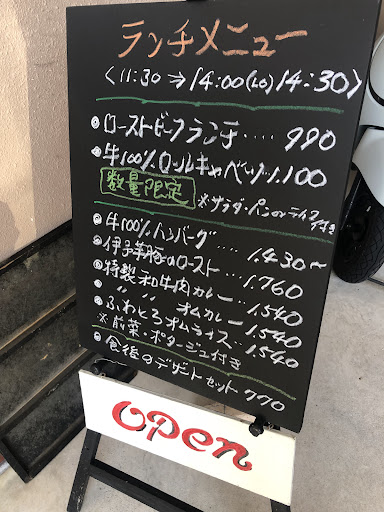 ランチメニュー
<11:30⇒14:00(LO)14:30>
・ローストビーフランチ‥‥990
・牛100%ロールキャベツ‥1,100
数量限定
※サラダ・パンorライス付き
・牛100%ハンバーグ‥‥1,430～
・伊予麦豚のロースト‥‥1,760
・特製和牛肉カレー‥‥1,540
・〃 〃 オムカレー‥1,540
・ふわとろオムライス‥1,540
※前菜・ポタージュ付き
・食後のデザートセット 770
open